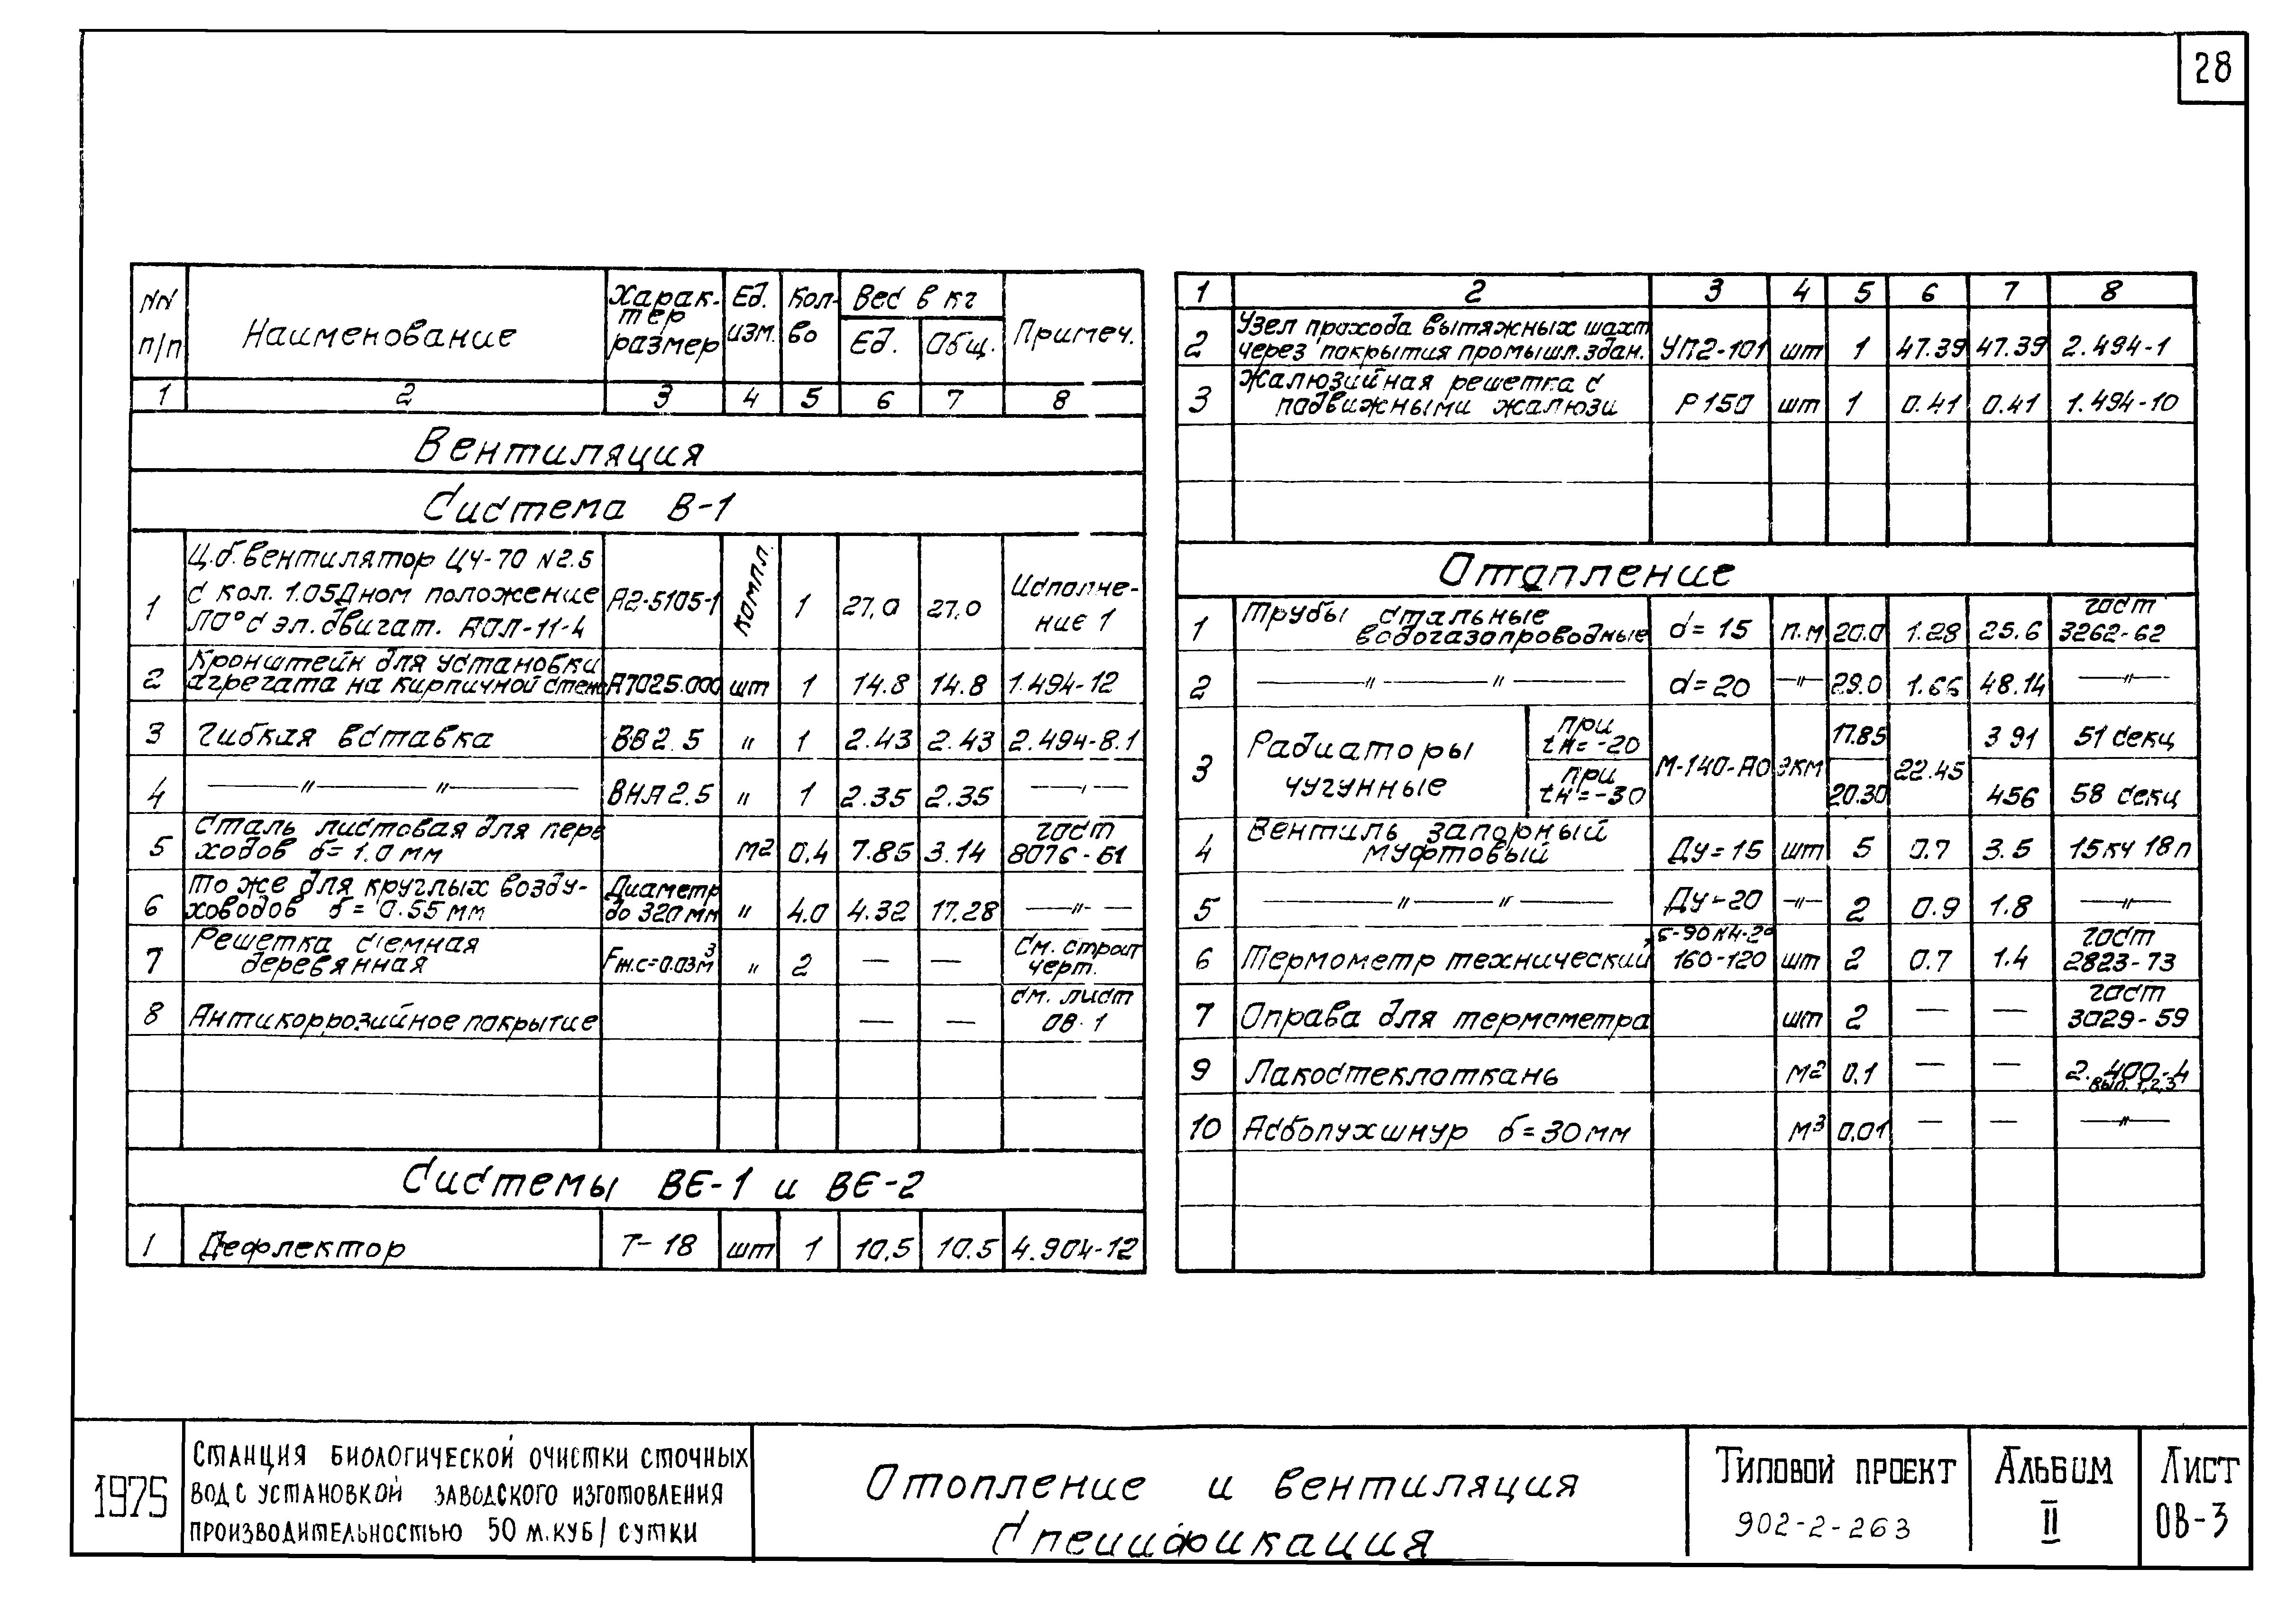 28
NN п/п Наименование Характер размер Ед. изм. Кол-во Вес в кг Ед. Общ. Примеч.
1 2 3 4 5 6 7 8
Вентиляция
Система В-1
1 Ц.б. вентилятор Ц4-70 N2.5 А2-5105-1 компл. 1 27.0 27.0 Исполне-
с кол. 1.05Дном положение ние 1
Л0° с эл. двигат. АОЛ-11-4
2 Кронштейн для установки
агрегата на кирпичной стене А7025.000 шт 1 14.8 14.8 1.494-12
3 Гибкая вставка ВВ 2.5 " 1 2.43 2.43 2.494-8.1
4 — " — " — ВНА 2.5 " 1 2.35 2.35 — " —
5 Сталь листовая для пере
ходов б= 1.0 мм м2 0.4 7.85 3.14 гост 8076-61
6 То же для круглых возду-
ховодов б= 0.55 мм Диаметр до 320 мм " 4.0 4.32 17.28 — " —
7 Решетка с'емная
деревянная Fж.с=0.03м3 " 2 — — См. строит черт.
8 Антикоррозийное покрытие — — см. лист ОВ-1
Системы ВЕ-1 и ВЕ-2
1 Дефлектор Т-18 шт 1 10.5 10.5 4.904-12
1 2 3 4 5 6 7 8
2 Узел прохода вытяжных шахт
через покрытия промышл. здан. УП2-101 шт 1 47.39 47.39 2.494-1
3 Жалюзийная решетка с
подвижными жалюзи Р 150 шт 1 0.41 0.41 1.494-10
Отопление
1 Трубы стальные
водогазопроводные d=15 п.м 20.0 1.28 25.6 гост 3262-62
2 — " — " — d=20 — " — 29.0 1.66 48.14 — " —
3 Радиаторы чугунные при tн=-20 М-140-АО экм 17.85 22.45 391 51 секц
при tн=-30 20.30 456 58 секц
4 Вентиль запорный
муфтовый Ду=15 шт 5 0.7 3.5 15кч 18п
5 — " — " — Ду-20 — " — 2 0.9 1.8 — " —
6 Термометр технический 160-120 шт 2 0.7 1.4 гост 2823-73
7 Оправа для термометра шт 2 — — гост 3029-59
9 Лакостеклоткань м2 0.1 — — 2.400-4 вып. 1,2,3
10 Асбопухшнур б=30мм м3 0.01 — — — " —
1975
Станция биологической очистки сточных
вод с установкой заводского изготовления
производительностью 50 м.куб/сутки
Отопление и вентиляция
Спецификация
Типовой проект
902-2-263
Альбом
II
Лист
ОВ-3